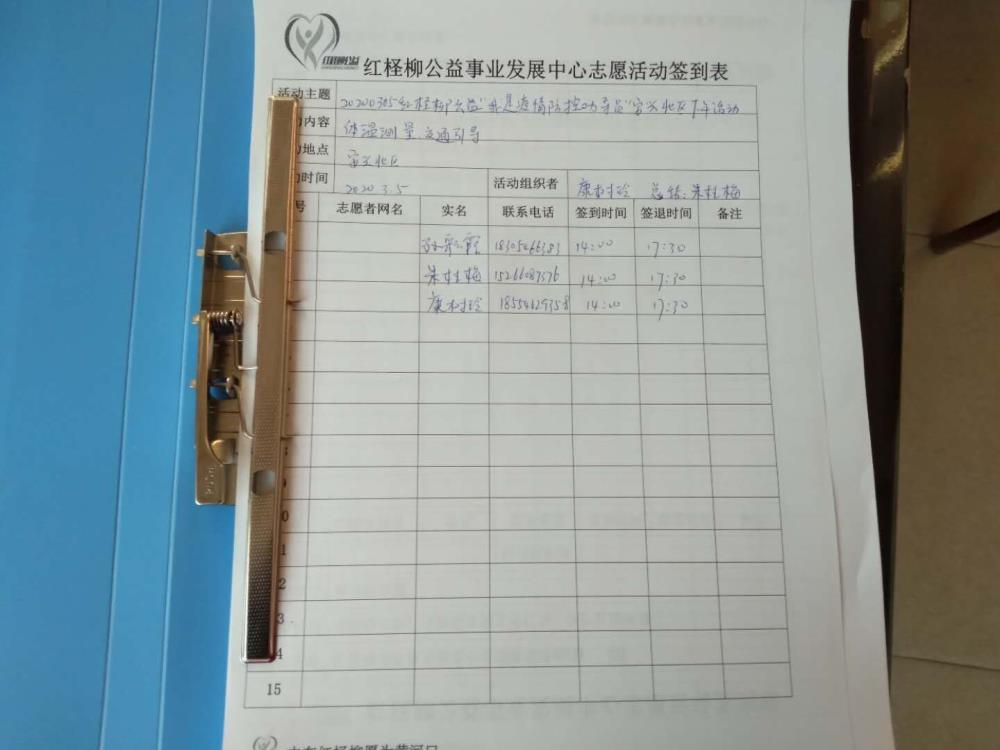 红柽柳公益事业发展中心志愿活动签到表
活动主题 20200305红柽柳公益"我是疫情防控劝导员"富兴北区下午活动
内容 体温测量、交通引导
地点 北区
时间 2020.3.5 活动组织者 康树玲 总结:朱桂梅
号 志愿者网名 实名 联系电话 签到时间 签退时间 备注
孙彩霞 18305466383 14:00 17:30
朱桂梅 15266087576 14:00 17:30
康树玲 18554629358 14:00 17:30
0
1
2
3
4
15